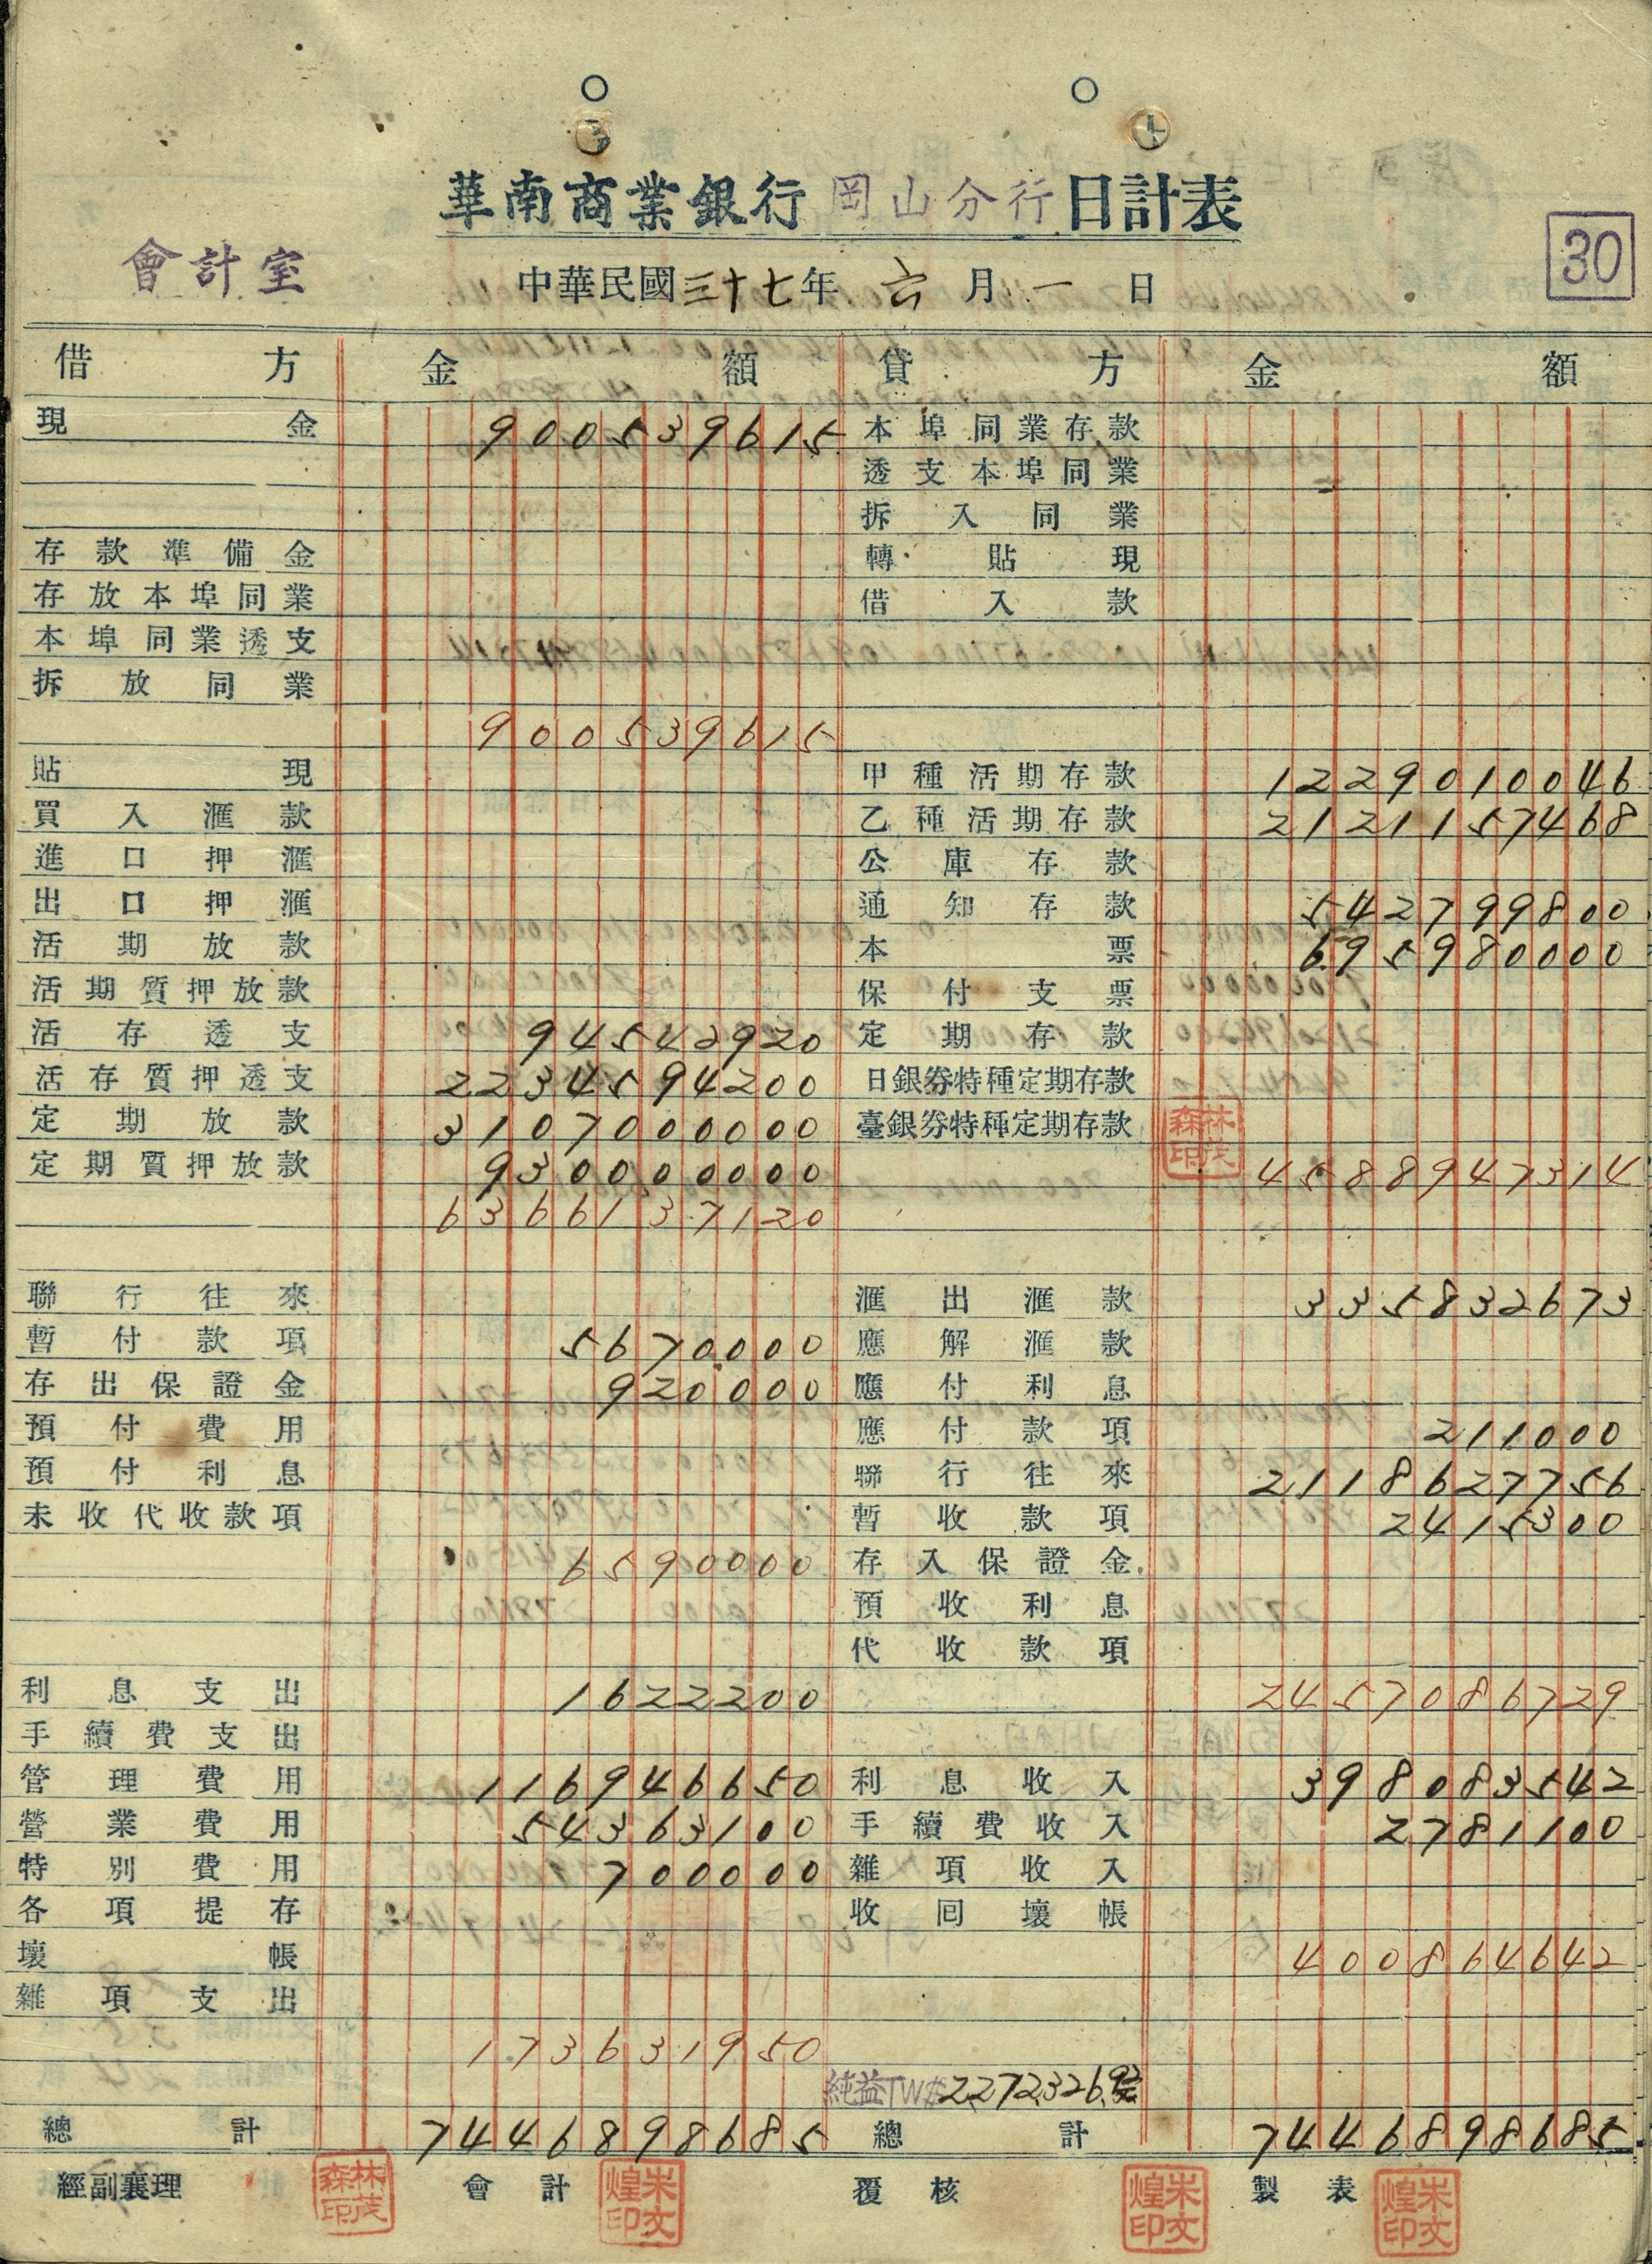 華南商業銀行 岡山分行 日計表
會計室
30
中華民國三十七年 六 月 一 日
借方 金額 貸方 金額
現金 900539615 本埠同業存款
透支本埠同業
拆入同業
存款準備金 轉貼現
存放本埠同業 借入款
本埠同業透支
拆放同業
900539615
貼現 甲種活期存款 1229010046
買入滙款 乙種活期存款 2121157468
進口押滙 公庫存款
出口押滙 通知存款 542799800
活期放款 本票 695980000
活期質押放款 保付支票
活存透支 94542920 定期存款
活存質押透支 2234594200 日銀券特種定期存款
定期放款 3107000000 臺銀券特種定期存款
林茂森印
定期質押放款 930000000 4588947314
6366137120
聯行往來 滙出滙款 335832673
暫付款項 5670000 應解滙款
存出保證金 920000 應付利息
預付費用 應付款項 211000
預付利息 聯行往來 2118627756
未收代收款項 暫收款項 2415300
6590000 存入保證金
預收利息
代收款項
利息支出 1622200 2457086729
手續費支出
管理費用 116946650 利息收入 398083542
營業費用 54363100 手續費收入 2781100
特別費用 700000 雜項收入
各項提存 收回壞帳
壞帳 400864642
雜項支出
173631950
純益TW$2,272,326.92
總計 7446898685 總計 7446898685
經副襄理 林茂森印 會計 朱文煌印 覆核 朱文煌印 製表 朱文煌印